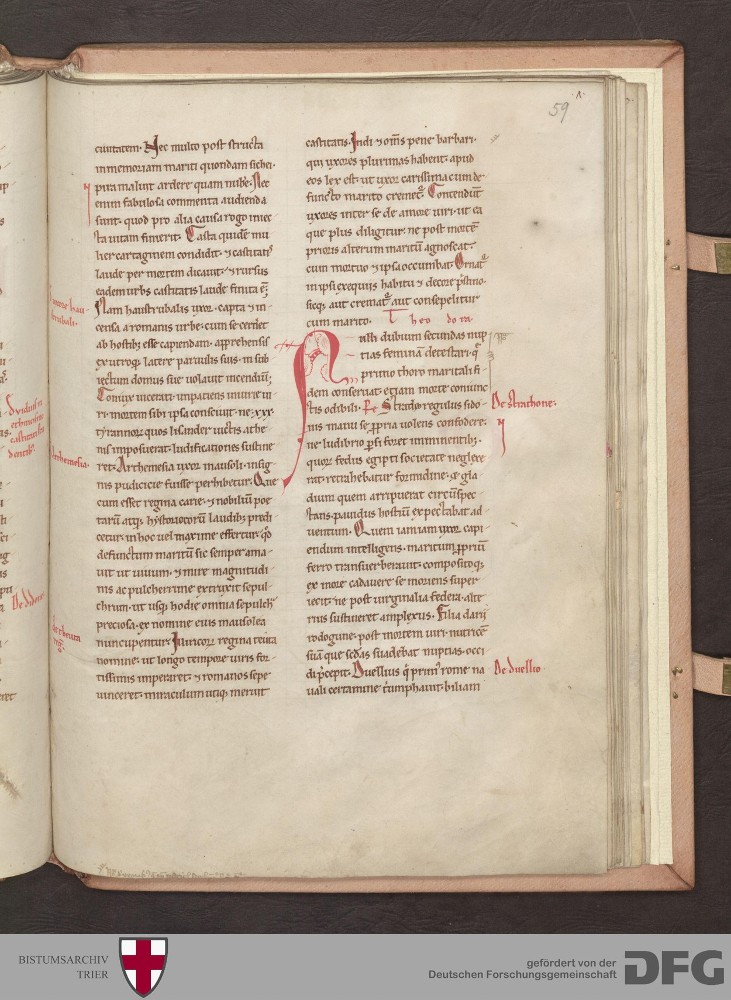 59
ciuitatem. Nec multo post structa
in memoriam mariti quondam sichei.
pira maluit ardere quam nubere. Nec
enim fabulosa commenta audienda
sunt. quod pro alia causa rogo iniec
ta uitam finierit. Casta quidē mu
lier cartaginem condidit. ⁊ castitatis
laude per mortem dicauit. ⁊ rursus
eadem urbs castitatis laude finita ē.
Nam hasdrubalis uxor. capta ⁊ in
censa a romanis urbe. cum se cerneret
ab hostibus esse capiendam. apprehensis
ex utroque latere paruulis suis. in sub
iectum domus sue uolauit incendiū.
Coniux nicerati. impatiens iniurie ui
ri. mortem sibi ipsa consciuit. ne xxx.
tyrannorū quos lisander uictis athe
nis imposuerat. ludificationes sustine
ret. Archemesia uxor mausoli. insig
nis pudicicie fuisse perhibetur. Que
cum esset regina carie. ⁊ nobiliū poe
tarū atque hystoricorū laudibus predi
cetur. in hoc uel maxime effertur. qđ
defunctum maritū sic semper ama
uit ut uiuum. ⁊ mire magnitudi
nis ac pulcherrime extruxit sepul
chrum. ut usque hodie omnia sepulchra
preciosa. ex nomine eius mausolea
nuncupentur.
regina teuta
nomine. ut longo tempore uiris for
tissimis imperaret. ⁊ romanos sepe
uinceret. miraculum utique meruit
castitatis. Indi ⁊ oms̄ pene barbari.
qui uxores plurimas habent. apud
eos lex est. ut uxor carissima cum de
functo marito cremetur. Contendunt
uxores inter se de amore uiri. ut ea
que plus diligitur. ne post mortē
prioris alterum maritū agnoscat.
cum mortuo ⁊ ipsa occumbat. Ornatur
in ipsis exequiis habitu ⁊ decore pristino.
sicque aut crematur. aut consepelitur
cum marito. Theodora.
Nulli dubium secundas nup
tias feminā detestari. que
primo thoro maritali fi
dem conseruat. etiam morte coniunc
tis odibili. Re Strado regulus sido
nis manu se propria uolens confodere.
ne ludibrio persis foret imminentibus.
quorum fedus egipti societate neglexe
rat. retrahebatur formidine. ⁊ gla
dium quem arripuerat circūspec
tans. pauidus hostiū expectabat ad
uentum. Quem iam iam uxor capi
endum intelligens. maritum propriū
ferro transuerberauit. compositoque
ex more cadauere se moriens super
iecit. ne post uirginalia federa. alte
rius sustineret amplexus. Filia darii
rodogune. post mortem uiri. nutricē
suā que secundas suadebat nuptias. occi
di precepit. Duellius qui primus rome na
uali certamine triumphauit. biliam
De stratone.
De duellio
Archemesia.
BISTUMSARCHIV
TRIER
gefördert von der
Deutschen Forschungsgemeinschaft
DFG